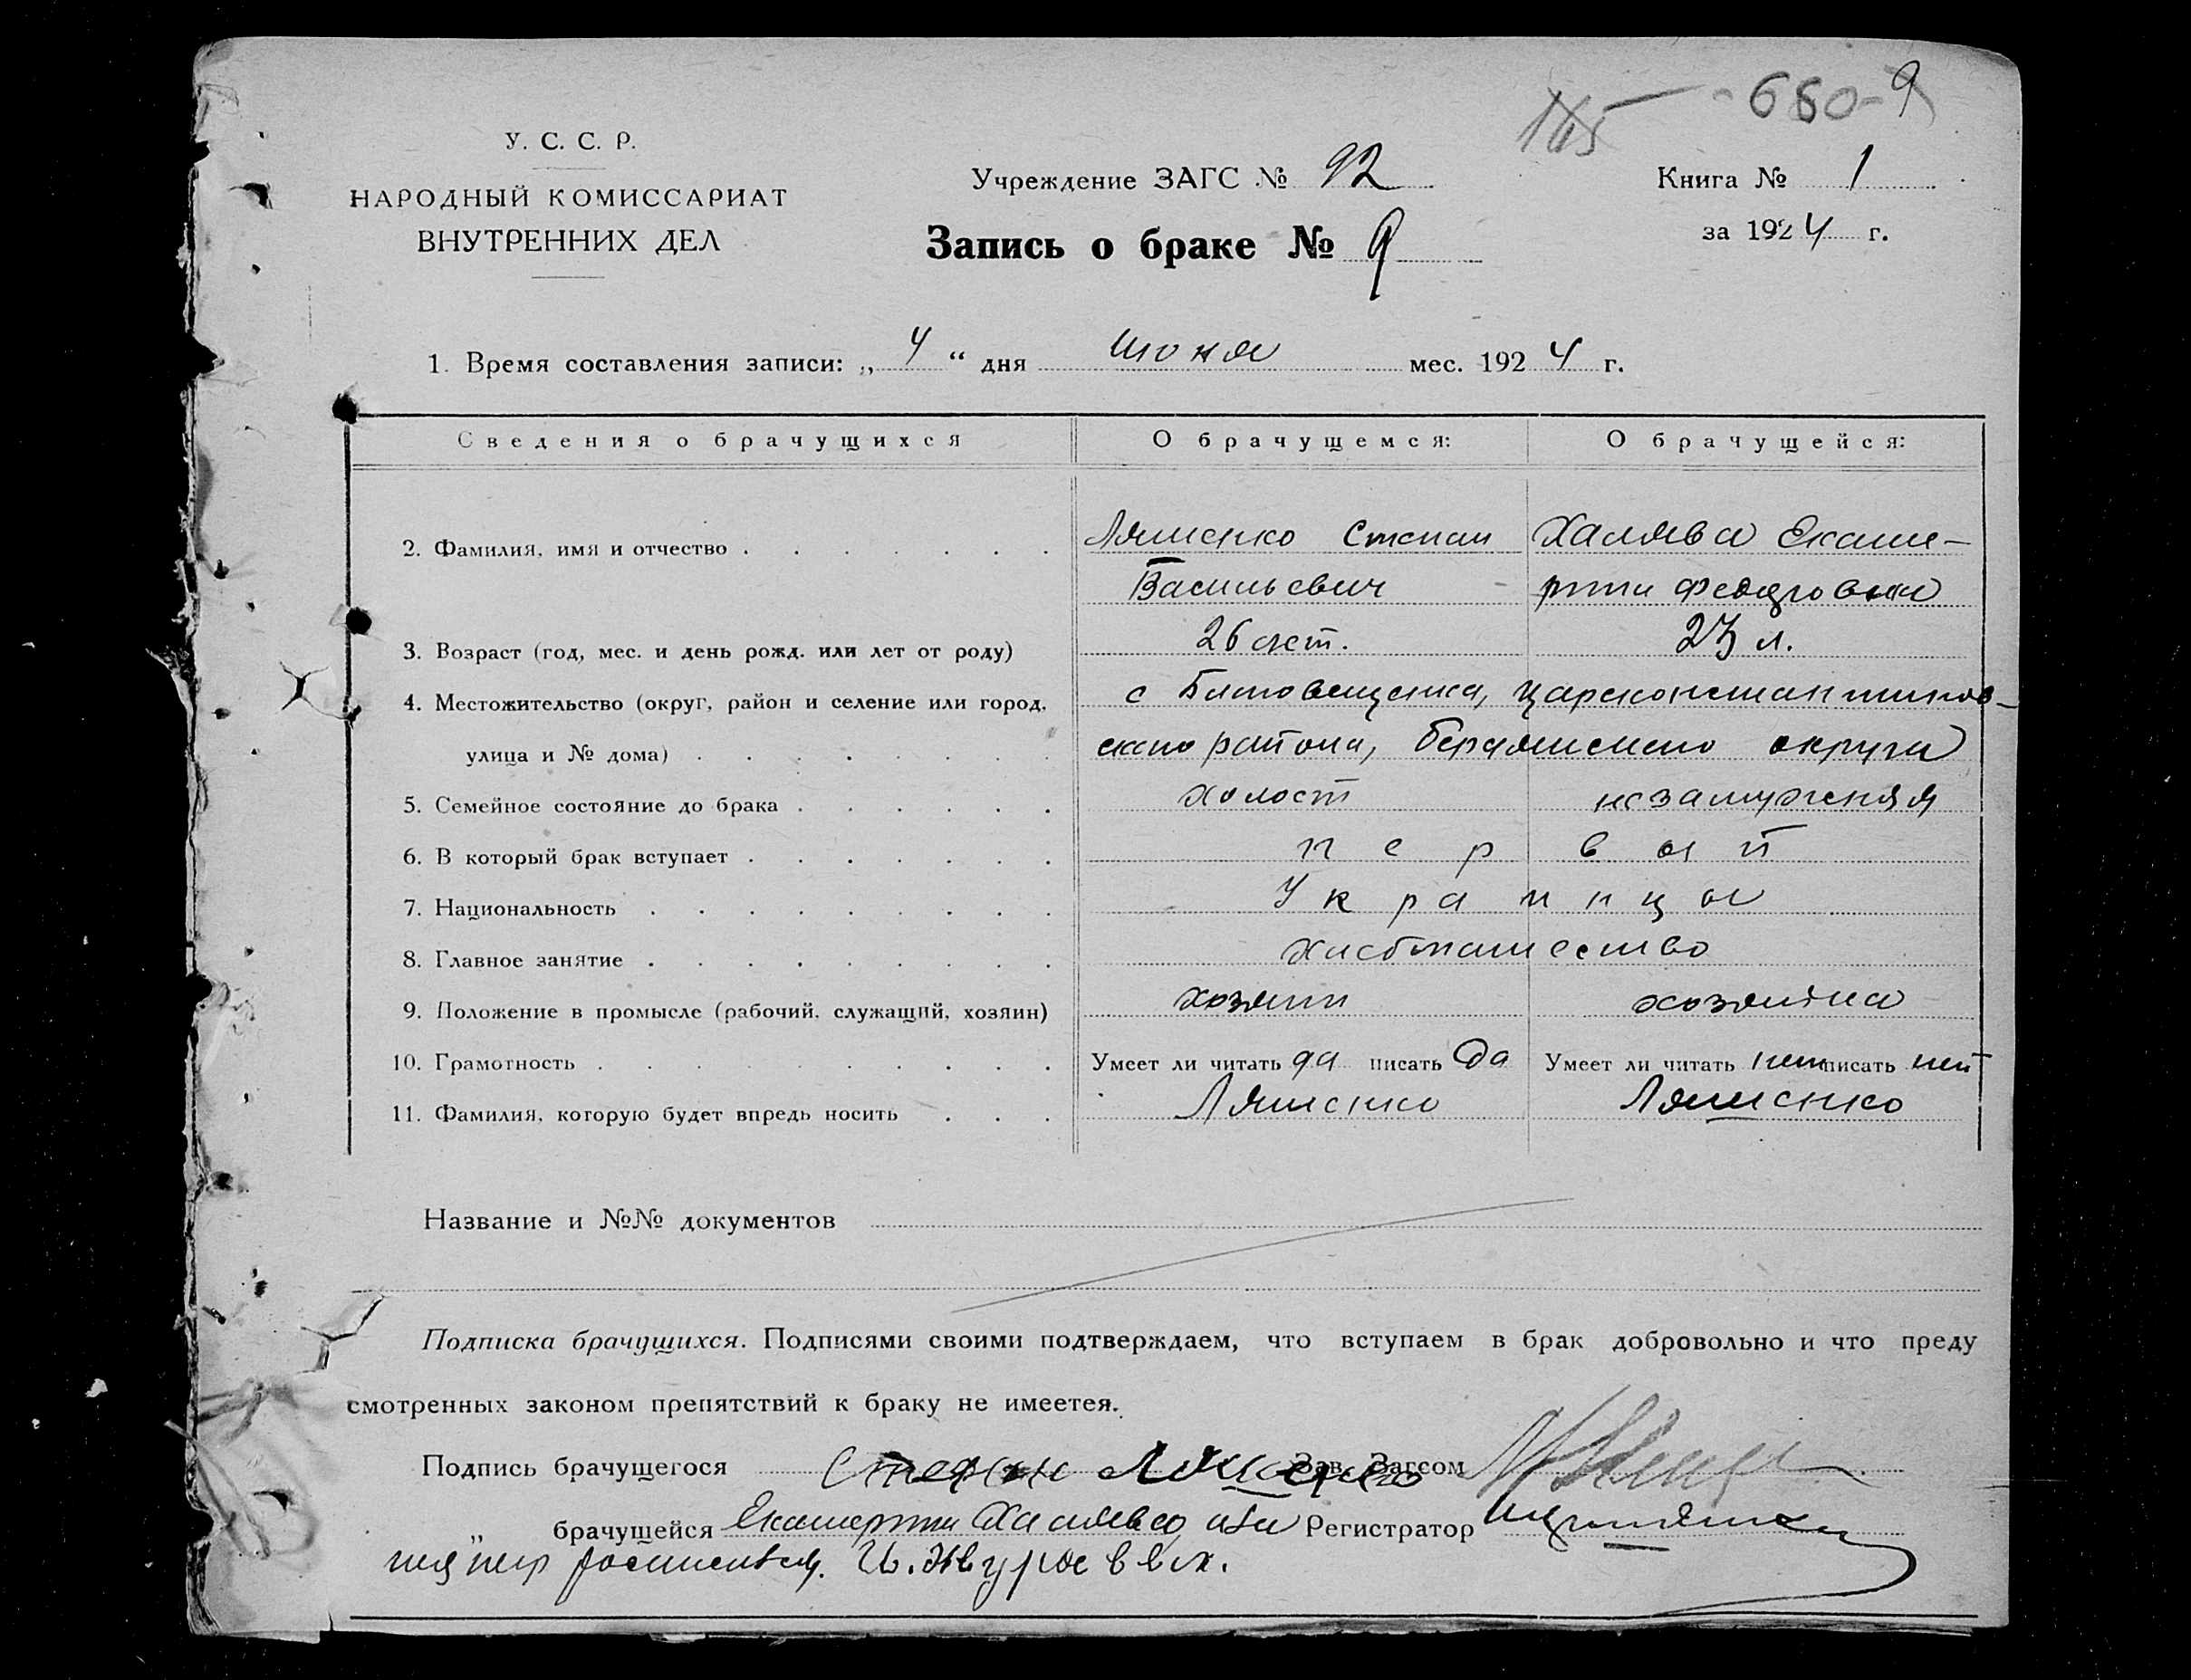 145 - 660 - 9
У. С. С. Р.
НАРОДНЫЙ КОМИССАРИАТ
ВНУТРЕННИХ ДЕЛ
Учреждение ЗАГС № 92
Книга № 1
Запись о браке № 9
за 1924 г.
1. Время составления записи: „ 4 “ дня июня мес. 1924 г.
Сведения о брачущихся О брачущемся: О брачущейся:
2. Фамилия, имя и отчество . . . . . . . Ляшенко Степан Халява Екате-
Васильевич рина Федоровна
3. Возраст (год, мес. и день рожд. или лет от роду) 26 лет. 23 л.
4. Местожительство (округ, район и селение или город, с Благовещенка, Цареконстантинов-
улица и № дома) . . . . . . . . ского района, Бердянского округа
5. Семейное состояние до брака . . . . . . холост незамужняя
6. В который брак вступает . . . . . . . первый
7. Национальность . . . . . . . . . Украинцы
8. Главное занятие . . . . . . . . . хлебопашество
9. Положение в промысле (рабочий, служащий, хозяин) хозяин хозяйка
10. Грамотность . . . . . . . . . . Умеет ли читать да писать да Умеет ли читать нет писать нет
11. Фамилия, которую будет впредь носить . . . Ляшенко Ляшенко
Название и №№ документов
Подписка брачущихся. Подписями своими подтверждаем, что вступаем в брак добровольно и что преду
смотренных законом препятствий к браку не имеетея.
Подпись брачущегося Степан Ляшенко Зав. Загсом
„ брачущейся Екатерина Халява, а за Регистратор
нея